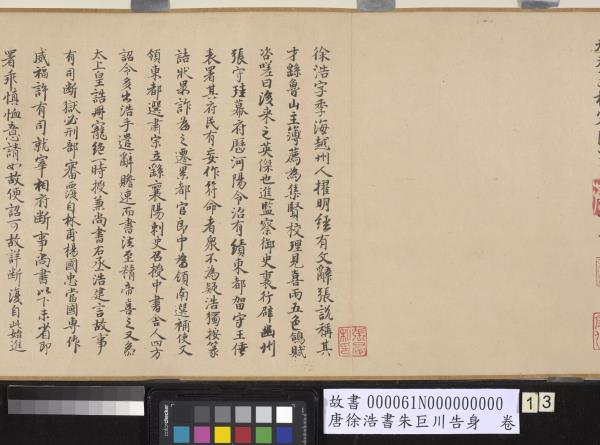 徐浩字季海越州人擢明經有文辭張說稱其
才繇魯山主薄薦為集賢校理見喜雨五色鴿賦
咨嗟曰後來之英傑也進監察御史裏行辟幽州
張守珪幕府歷河陽令治有績東都留守王倕
表署其府民有妄作符命者衆不為疑浩獨按篆
詰狀果詐為之遷累都官郎中為領南選補使又
領東都選肅宗立繇襄陽刺史召授中書舍人四方
詔令多出浩手遣辭贍速而書法至精帝喜之又參
太上皇誥冊寵絕一時授兼尚書右丞浩建言故事
有司斷獄必刑部審覆自林甫楊國忠當國專作
威福許有司就宰相府斷事尚書以下未省即
署乖慎恤意請如故便詔可故詳斷復自此始進
故書 000061N000000000
唐徐浩書朱巨川告身 卷
13